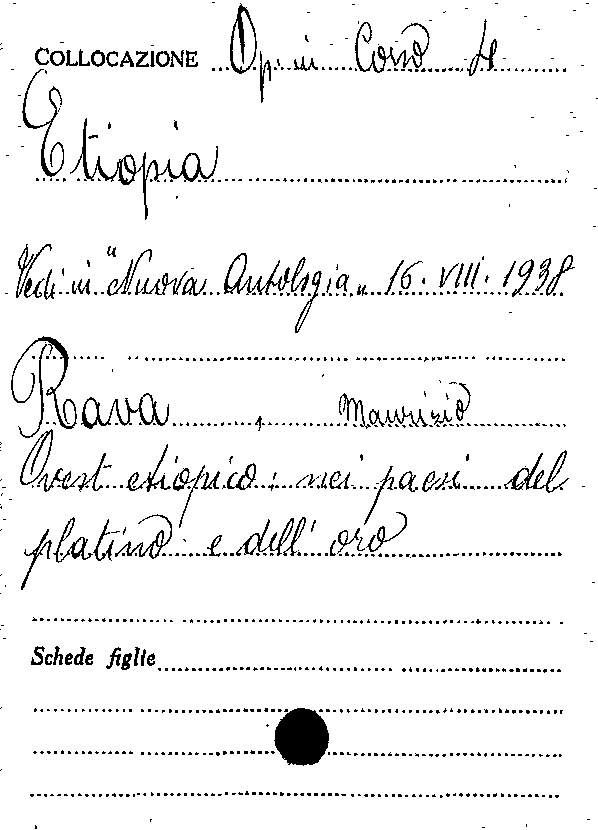 COLLOCAZIONE Op. in Corso 4
Etiopia
Vedi in "Nuova Antologia" 16. VIII. 1938
Rava, Maurizio
Ovest etiopico: nei paesi del
platino e dell'oro
Schede figlie